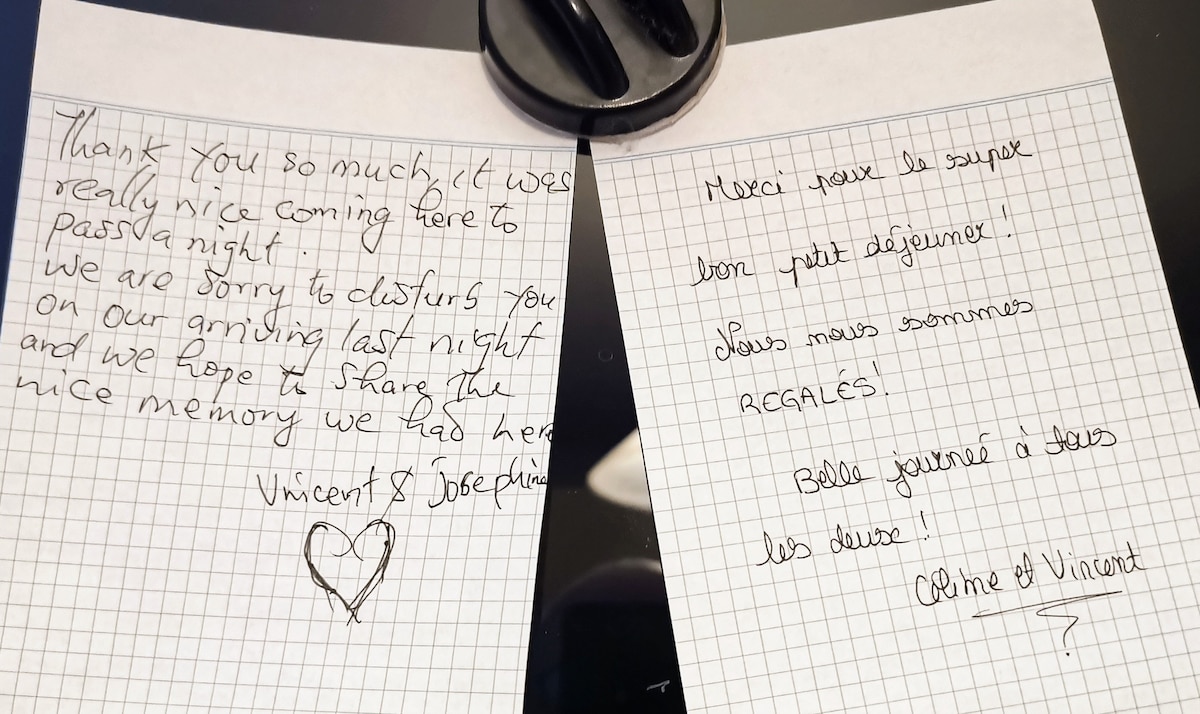 Thank you so much, it was
really nice coming here to
pass a night.
We are sorry to disturb you
on our arriving last night
and we hope to share the
nice memory we had here
Vincent & Josephine
Merci pour le super
bon petit déjeuner !
Nous nous sommes
REGALÉS !
Belle journeé à tous
les deux !
Coline et Vincent